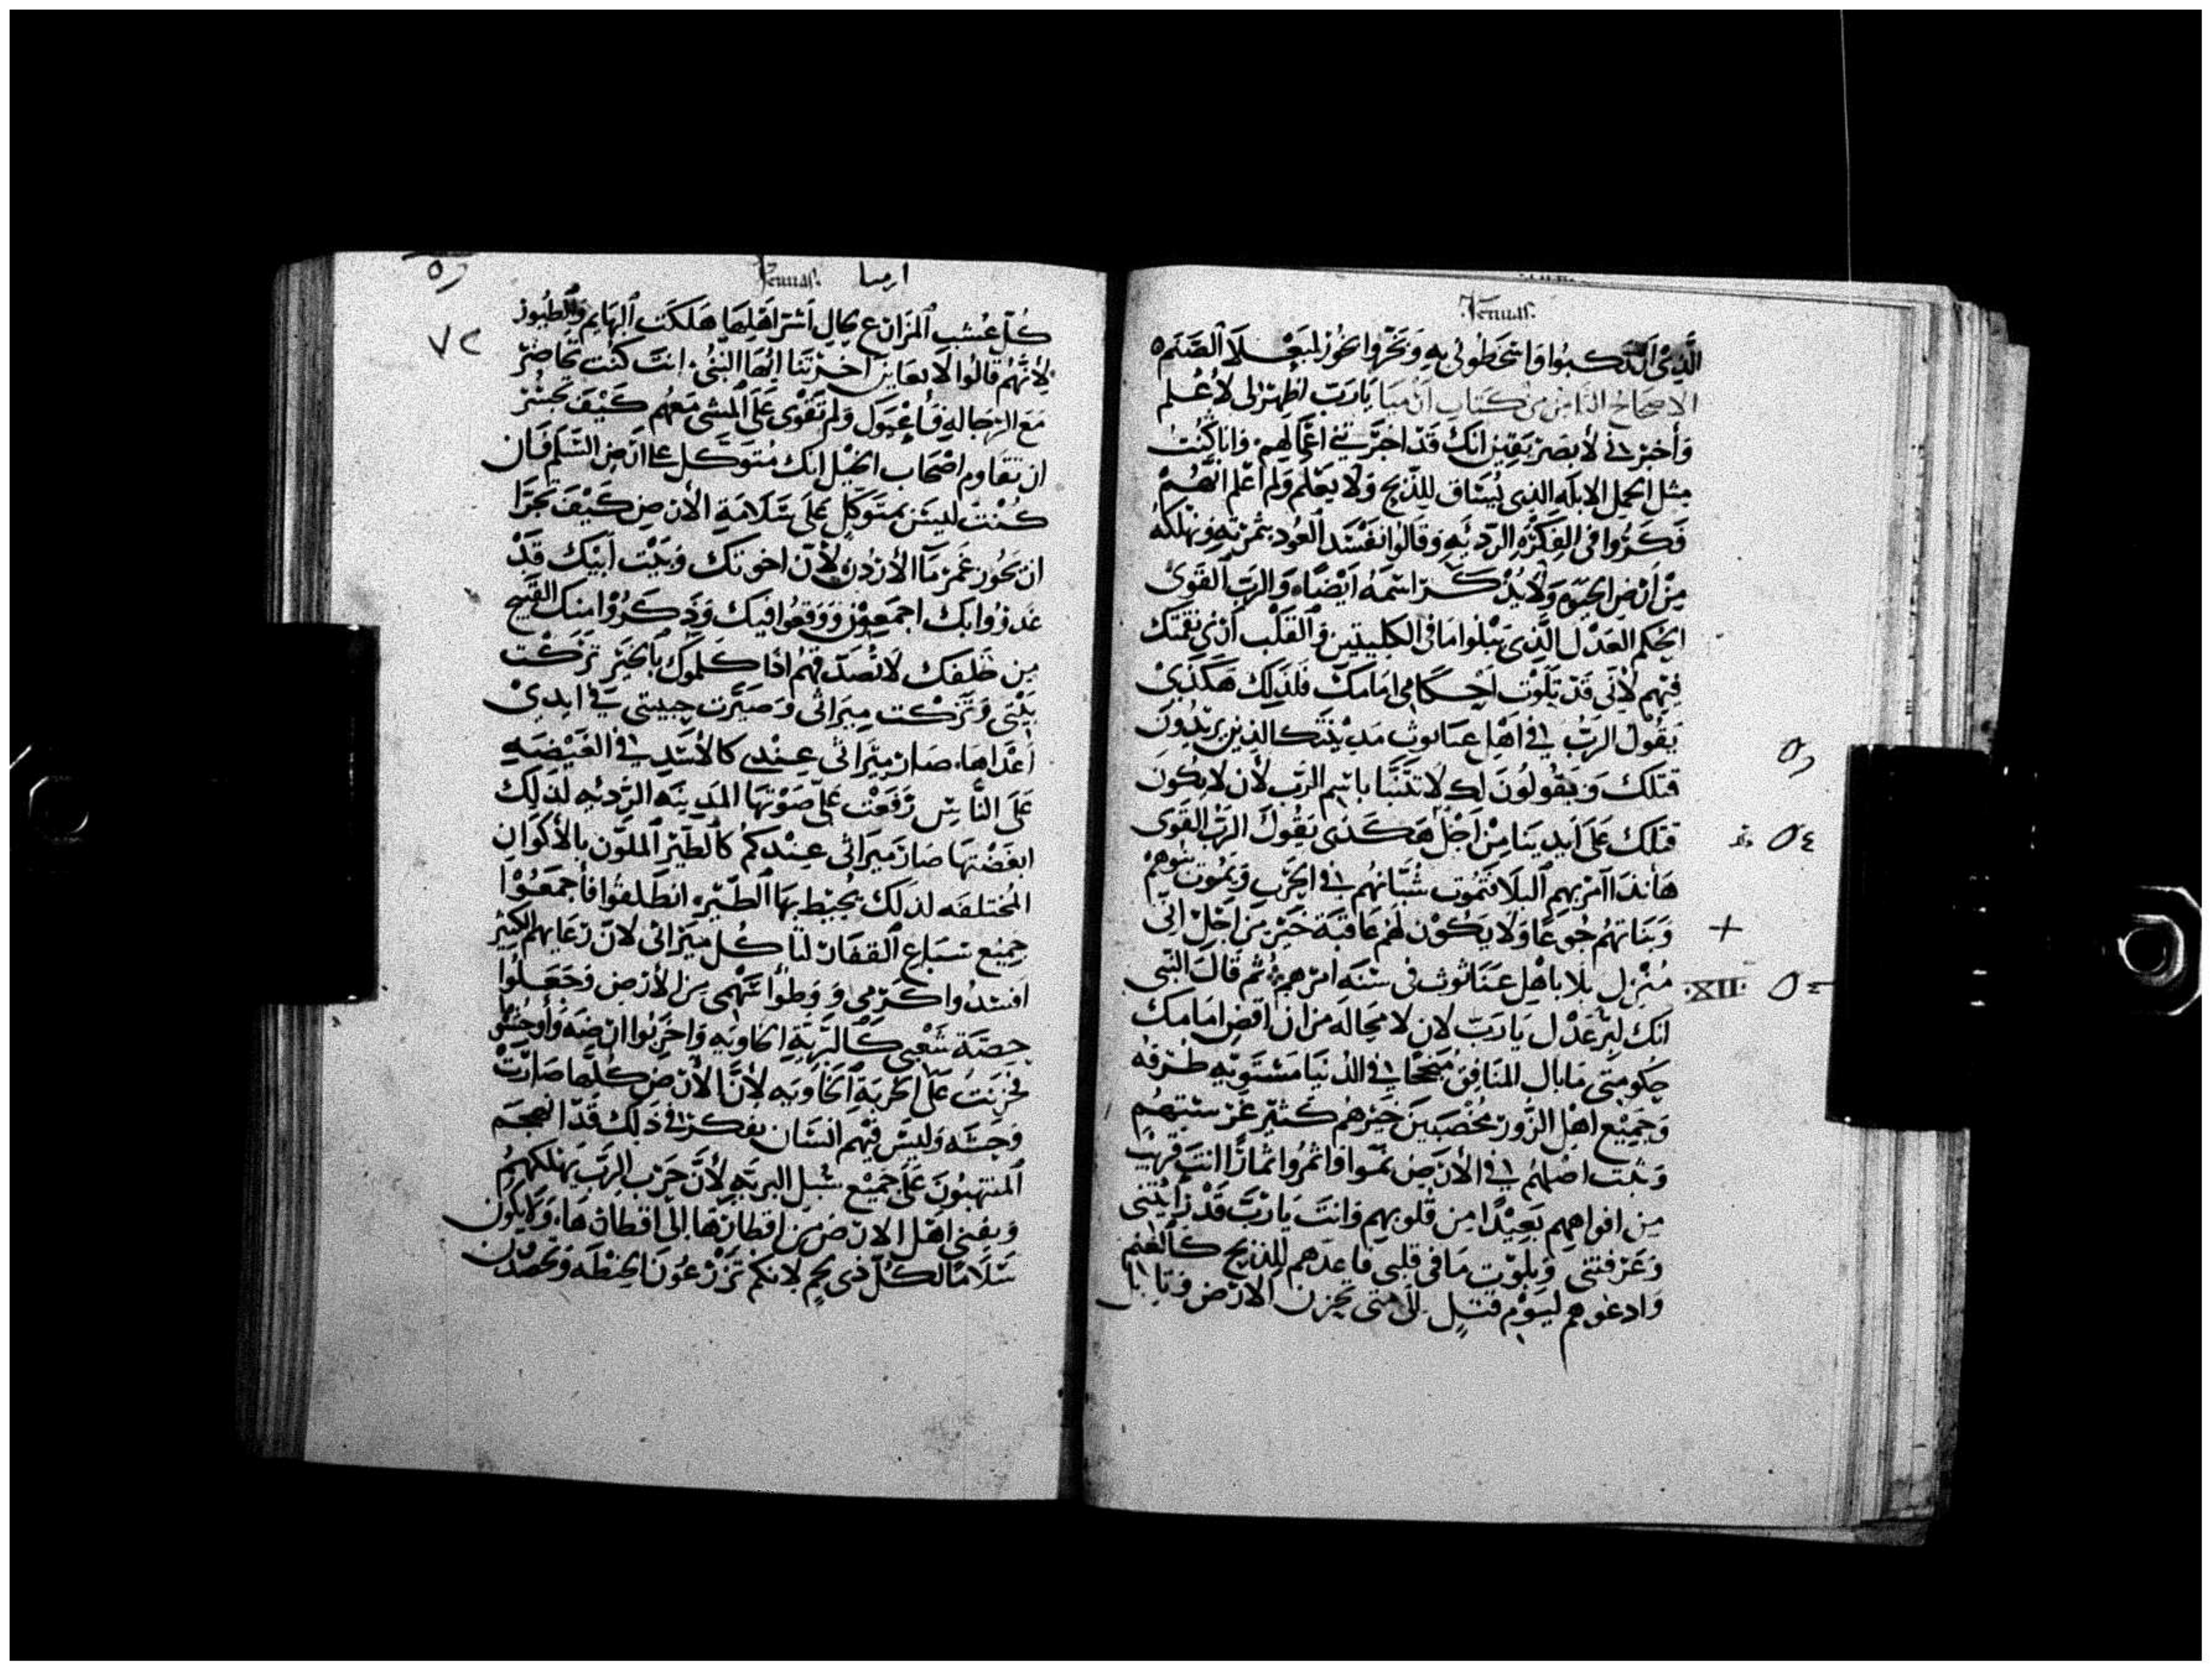 Jeremias.
الَّذِى ارتكبوا واسخطونى به وَنَحَرُوا بخور لبَعْلا الصَّنَم
الاصحاح الثامن من كتاب ارميا يارَبّ اظهرْ لى لأعْلم
وَأخبرنى لأبصر بيقين انك قَدْ اخبَرْتنى اعْمَالهم وَانا كُنْت
مثل الحمل الابله الذى يُسَاق للذبح وَلا يَعْلم وَلم اعْلم انَّهُمْ
فكروا فى الفِكَرَه الرَّديّهِ وَقالوا نفسد العُود بثمرتِه وَنهلكه
مِنْ أَرْض الحيَوه وَلا يُذكَر اسْمَهُ ايْضًا وَالربّ القَوى
الحكم العَدْل الَّذى يَبْلوا مَا فى الكليتين وَالقلْب أرنى نقمتك
فيهم لأنى قدْ تَلَوْت احْكامى امَامكَ فلذلِك هَكَذى
يَقُول الرَبُّ فى اهْل عناثوث مَدينتك الذين يريدُونَ
قتلكَ وَيَقُولُونَ لك لا تتنبَّا باسْم الرَبّ لأن لا يكون
قتلك عَلى أيدينا مِنْ أَجْل هَكَذى يَقُول الربّ القَوى
هَانذا آمر بهم البلا فتمُوت شُبَّانهُم فى الحَرْب وَتمُوت بنوهم
وَبَنَاتهُم جُوعًا وَلا يَكُوْن لهُم عَاقبَة خَيْر مِن اجْل انى
مُنْزل بلا باهل عَنَاثوث فى سَنَه امرهم ثم قَالَ النبى
انك لبَرّ عَدْل يَا رَبّ لان لا محاله من ان اقض امَامك
حكومتى مَا بَال المنَافق منجحًا فى الدُنيا مسْتويه طرقه
وَجَميْع اهْل الزُور مُخْصبين خَيرهُم كثير غرستهُم
وَثبت اصْلهُم فى الأرض نمَوا وَاثمرُوا ثمارًا انتَ قريب
مِن افواههم بَعِيْدًا مِن قلُوبهم وَانتَ يَا رَبّ قَدْ رَأَيْتنى
وَعَرفتنى وَبلوْت مَا فى قلبى فاعدّهم للذبح كالغنم
وَادعوهم ليَوْم قتل الى متى تحزن الارض وَيَا
وه
٥٤
+
XII
وه
Jeremias. ارميا
٧٢
كُلّ عُشب المزارع بحال أشر اهْلهَا هَلكَت البهَايم وَالطيُور
لأنَّهُم قالوا لا يعَاين آخرتنا ايُّهَا النبىُّ انت كنت تحاضر
مَعَ الرَّجَاله فاعْيوك وَلم تَقْوى عَلَى المشى مَعَهُم كَيْفَ تجسُر
ان تقاوم اصْحَاب الخيل انك مُتوَكّل على ارْض السَّلم فَان
كُنْتَ ليسَ بمتوكّل عَلَى سَلامَةِ الأرض كَيْفَ تجرَّا
ان تحوز غمر مَآ الأردن لأن اخوتك وَبَيْت أبيك قَدْ
غَدرُوا بك اجمَعون وَوَقعُوا فيك وَذكَرُوا منك القَبيح
مِن خلفك لا تُصَدّقهُم اذا كلموك بالخير تركْت
بَيْتى وَتَركْت ميراثى وَصيَّرت حبيبتى فى ايدى
أعْدَاها صَار ميراثى عندى كالأسَد فى الغَيْضَه
عَلَى النَّاسِ رَفَعَت عَلىَّ صَوْتهَا المَدينَه الرَّدئيه لذلك
ابغضْتهَا صَار ميراثى عندكم كالطيْر الملَوّن بالألوَان
المُختلفه لذلك يُحيط بهَا الطَّيْر انطلقوا فاجمَعُوا
جَميْع سبَاع القفَار لتاكُل ميراثى لانّ رُعَاتهم الكثير
افسَدُوا كَرْمى وَوَطوا سَهْمى مِن الأرض وَجَعَلُوا
حصَّة شَعْبى كالبَريَّة الخاويَه وَاخربُوا ارضَه وَأوحشُوهَا
فحزنتُ عَلَى الخربَة الخاويَه لأنَّ الأرض كُلّهَا صَارَتْ
وَحْشَه وَليسَ فيْهم انسَان يفكر فى ذَلك قَدْ انهجم
المنتهبُونَ عَلَى جَميْع سُبل البريَّه لأنَّ حَرْب الربّ يهلكهُم
وَيفنى اهل الارض من اقطارهَا الى اقطارهَا وَلا يكون
سَلامًا لكُلّ ذى لحم لانكم تَزْرَعُونَ الحنطَه وَتحصدُون